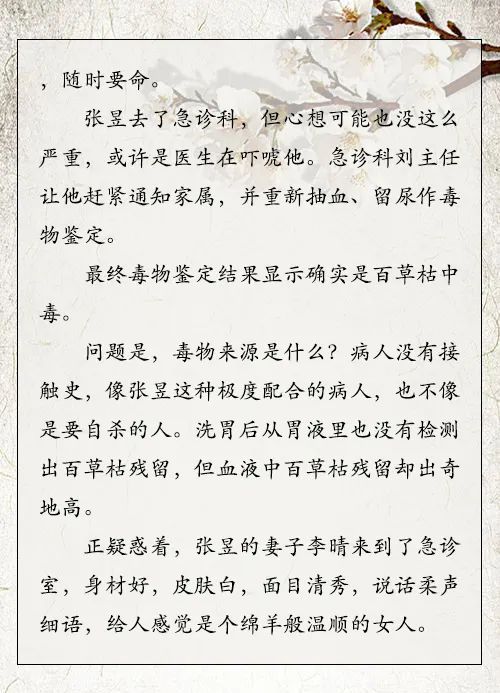 ，随时要命。
张昱去了急诊科，但心想可能也没这么
严重，或许是医生在吓唬他。急诊科刘主任
让他赶紧通知家属，并重新抽血、留尿作毒
物鉴定。
最终毒物鉴定结果显示确实是百草枯中
毒。
问题是，毒物来源是什么？病人没有接
触史，像张昱这种极度配合的病人，也不像
是要自杀的人。洗胃后从胃液里也没有检测
出百草枯残留，但血液中百草枯残留却出奇
地高。
正疑惑着，张昱的妻子李晴来到了急诊
室，身材好，皮肤白，面目清秀，说话柔声
细语，给人感觉是个绵羊般温顺的女人。